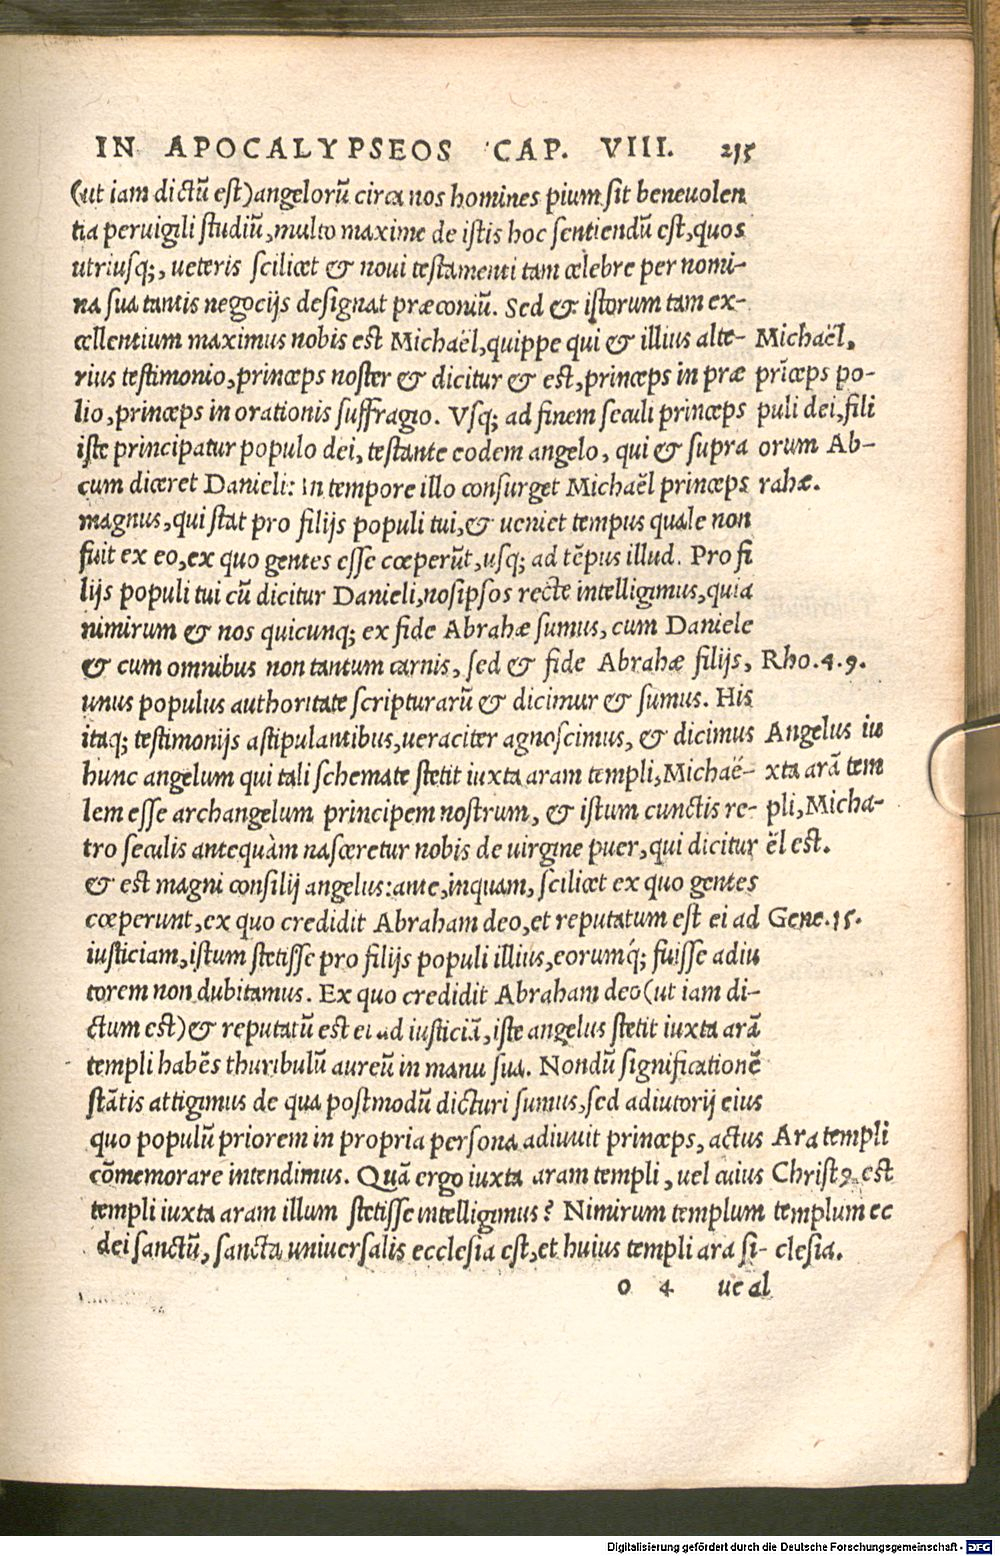 IN APOCALYPSEOS CAP. VIII. 215
(ut iam dictū est) angelorū circa nos homines pium sit beneuolen
tia peruigili studiū, multo maxime de istis hoc sentiendū est, quos
utriusq;, ueteris scilicet & noui testamenti tam celebre per nomi-
na sua tantis negocijs designat præconiū. Sed & istorum tam ex-
cellentium maximus nobis est Michaël, quippe qui & illius alte-
rius testimonio, princeps noster & dicitur & est, princeps in præ
lio, princeps in orationis suffragio. Vsq; ad finem seculi princeps
iste principatur populo dei, testante eodem angelo, qui & supra
cum diceret Danieli: In tempore illo consurget Michaël princeps
magnus, qui stat pro filijs populi tui, & ueniet tempus quale non
fuit ex eo, ex quo gentes esse cœperūt, usq; ad tēpus illud. Pro fi
lijs populi tui cū dicitur Danieli, nosipsos recte intelligimus, quia
nimirum & nos quicunq; ex fide Abrahæ sumus, cum Daniele
& cum omnibus non tantum carnis, sed & fide Abrahæ filijs,
unus populus authoritate scripturarū & dicimur & sumus. His
itaq; testimonijs astipulantibus, ueraciter agnoscimus, & dicimus
hunc angelum qui tali schemate stetit iuxta aram templi, Michaë-
lem esse archangelum principem nostrum, & istum cunctis re-
tro seculis antequàm nasceretur nobis de uirgine puer, qui dicitur
& est magni consilij angelus: ante, inquam, scilicet ex quo gentes
cœperunt, ex quo credidit Abraham deo, et reputatum est ei ad
iusticiam, istum stetisse pro filijs populi illius, eorumq́; fuisse adiu
torem non dubitamus. Ex quo credidit Abraham deo (ut iam di-
ctum est) & reputatū est ei ad iusticiā, iste angelus stetit iuxta arā
templi habēs thuribulū aureū in manu sua. Nondū significationē
stātis attigimus de qua postmodū dicturi sumus, sed adiutorij eius
quo populū priorem in propria persona adiuuit princeps, actus
cōmemorare intendimus. Quā ergo iuxta aram templi, uel cuius
templi iuxta aram illum stetisse intelligimus? Nimirum templum
dei sanctū, sancta uniuersalis ecclesia est, et huius templi ara si-
o 4 ue al
Michaël,
prīceps po-
puli dei, fili
orum Ab-
rahæ.
Rho. 4. 9.
Angelus iu
xta arā tem
pli, Micha-
ël est.
Gene. 15.
Ara templi
Christꝰ est
templum ec
clesia.
Digitalisierung gefördert durch die Deutsche Forschungsgemeinschaft - DFG